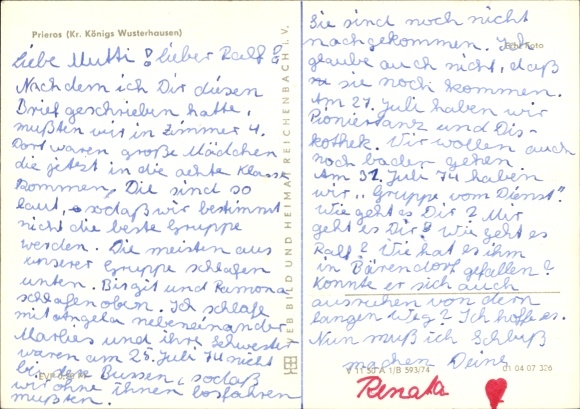 Prieros (Kr. Königs Wusterhausen)
Liebe Mutti! lieber Ralf!
Nachdem ich Dir diesen
Brief geschrieben hatte,
mußten wir in Zimmer 4.
Dort waren große Mädchen
die jetzt in die achte Klasse
kommen. Die sind so
laut, sodaß wir bestimmt
nicht die beste Gruppe
werden. Die meisten aus
unserer Gruppe schlafen
unten. Birgit und Ramona
schlafen oben. Ich schlafe
mit Angela nebeneinander
Marlies und ihre Schwester
waren am 25. Juli 74 nicht
bei den Bussen, sodaß
wir ohne ihnen losfahren
mußten.
VEB BILD UND HEIMAT REICHENBACH I. V.
Sie sind noch nicht
nachgekommen. Ich
glaube auch nicht, daß
sie noch kommen.
Am 27. Juli haben wir
Pioniertanz und Dis-
kothek. Wir wollen auch
noch baden gehen
Am 31. Juli 74 haben
wir „Gruppe vom Dienst".
Wie geht es Dir? Mir
geht es Dir? Wie geht es
Ralf? Wie hat es ihm
in Bärendorf gefallen?
Konnte er sich auch
ausruhen von dem
langen Weg? Ich hoffe es.
Nun muß ich Schluß
machen Deine
Renata
V 11 50 A 1/B 593/74
01 04 07 326